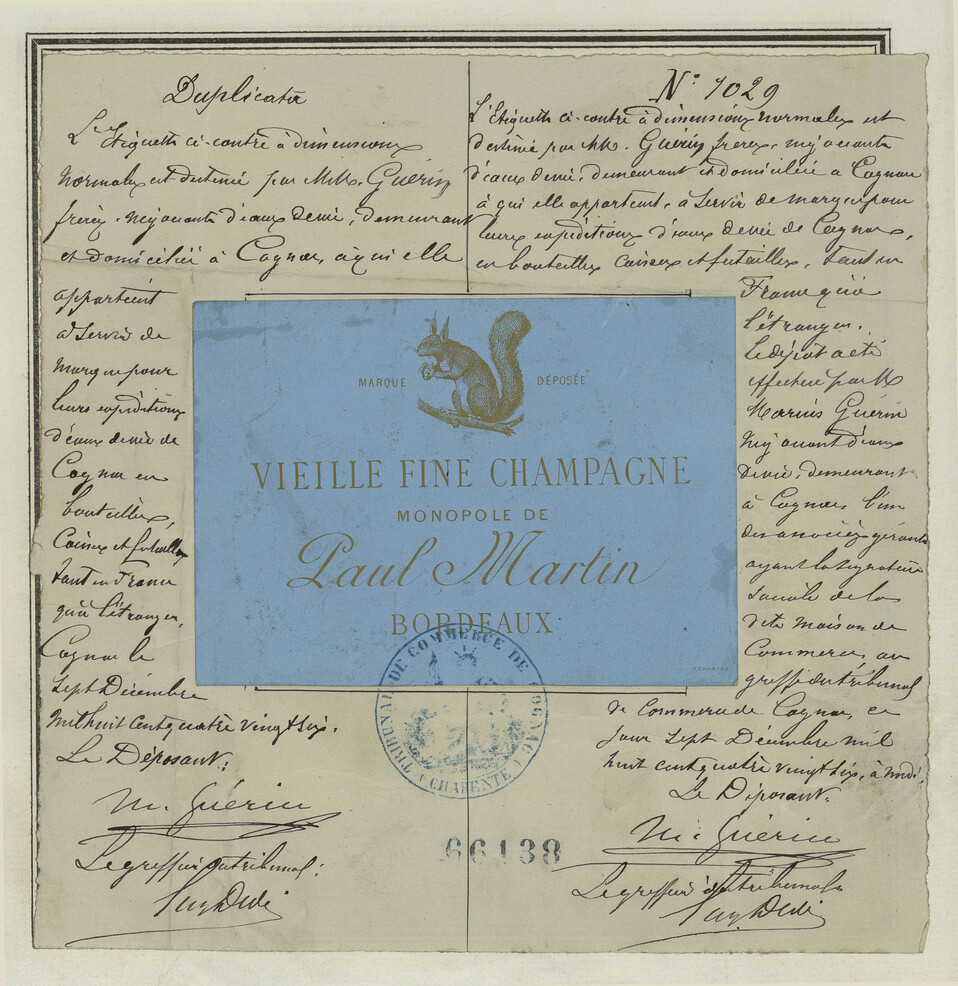 Duplicata
L'Etiquette ci-contre à dimensions
normales est destinée par MM. Guérin
frères, négociants d'eaux de vie, demeurant
et domiciliés à Cognac, à qui elle
appartient
à servir de
marque pour
leurs expéditions
d'eaux de vie de
Cognac en
bouteilles,
Caisses et futailles
tant en France
qu'à l'étranger,
Cognac le
Sept Décembre
mil huit cent quatre vingt six.
Le Déposant:
M. Guérin
Le greffier du tribunal:
N° 1029
L'Etiquette ci-contre à dimensions normales est
destinée par MM. Guérin frères, négociants
d'eaux de vie, demeurant et domiciliés à Cognac
à qui elle appartient, à servir de marque pour
leurs expéditions d'eaux de vie de Cognac,
en bouteilles caisses et futailles, tant en
France qu'à
l'étranger.
Le dépôt a été
effectué par M
Marius Guérin
négociant d'eaux
de vie, demeurant
à Cognac l'un
des associés gérants
ayant la signature
sociale de la
dite maison de
Commerce, au
greffe du tribunal
de commerce de Cognac, ce
jour Sept Décembre mil
huit cent quatre vingt six, à midi.
Le Déposant:
M. Guérin
Le greffier du tribunal
MARQUE DÉPOSÉE
VIEILLE FINE CHAMPAGNE
MONOPOLE DE
Paul Martin
BORDEAUX
TRIBUNAL DE COMMERCE DE COGNAC
(CHARENTE)
66138